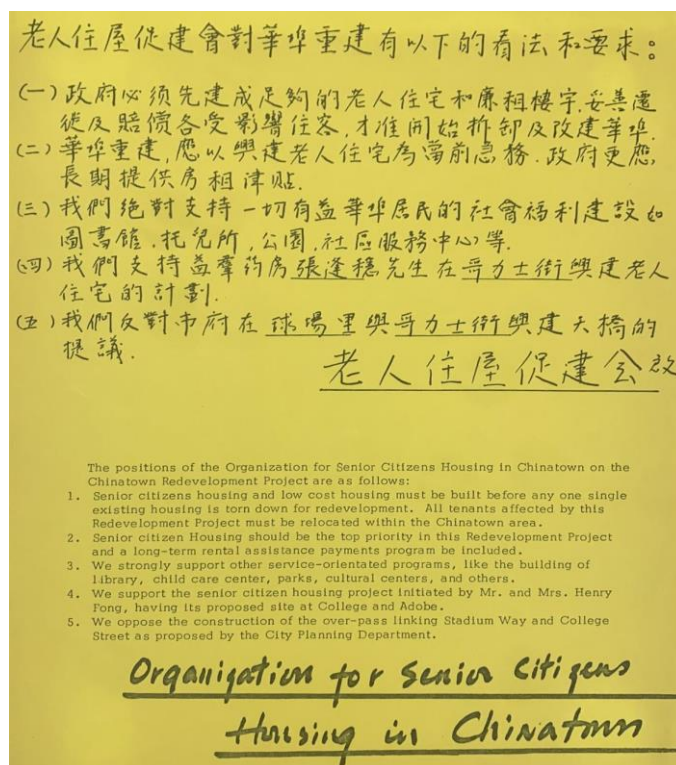 老人住屋促建會對華埠重建有以下的看法和要求：
(一) 政府必須先建成足夠的老人住宅和廉租樓宇，妥善遷
徙及賠償各受影響住客，才准開始拆卸及改建華埠．
(二) 華埠重建，應以興建老人住宅為當前急務．政府更應
長期提供房租津貼．
(三) 我們絶對支持一切有益華埠居民的社會福利建設如
圖書館．托兒所，公園，社區服務中心等．
(四) 我們支持益羣药房張逢穏先生在哥力士街興建老人
住宅的計劃．
(五) 我們反對市府在球場里與哥力士街興建天橋的
提議．
老人住屋促建会啟
The positions of the Organization for Senior Citizens Housing in Chinatown on the
Chinatown Redevelopment Project are as follows:
1. Senior citizens housing and low cost housing must be built before any one single
existing housing is torn down for redevelopment. All tenants affected by this
Redevelopment Project must be relocated within the Chinatown area.
2. Senior citizen Housing should be the top priority in this Redevelopment Project
and a long-term rental assistance payments program be included.
3. We strongly support other service-orientated programs, like the building of
library, child care center, parks, cultural centers, and others.
4. We support the senior citizen housing project initiated by Mr. and Mrs. Henry
Fong, having its proposed site at College and Adobe.
5. We oppose the construction of the over-pass linking Stadium Way and College
Street as proposed by the City Planning Department.
Organization for Senior Citizens
Housing in Chinatown